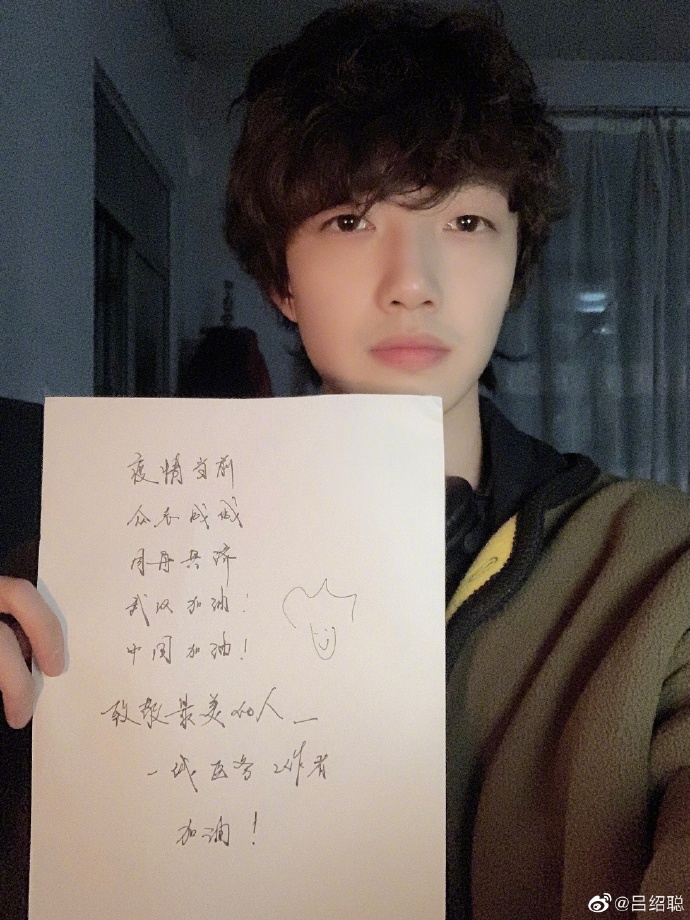 疫情当前
众志成城
同舟共济
武汉加油!
中国加油!
致敬最美的人—
一线医务工作者
加油!
@吕绍聪